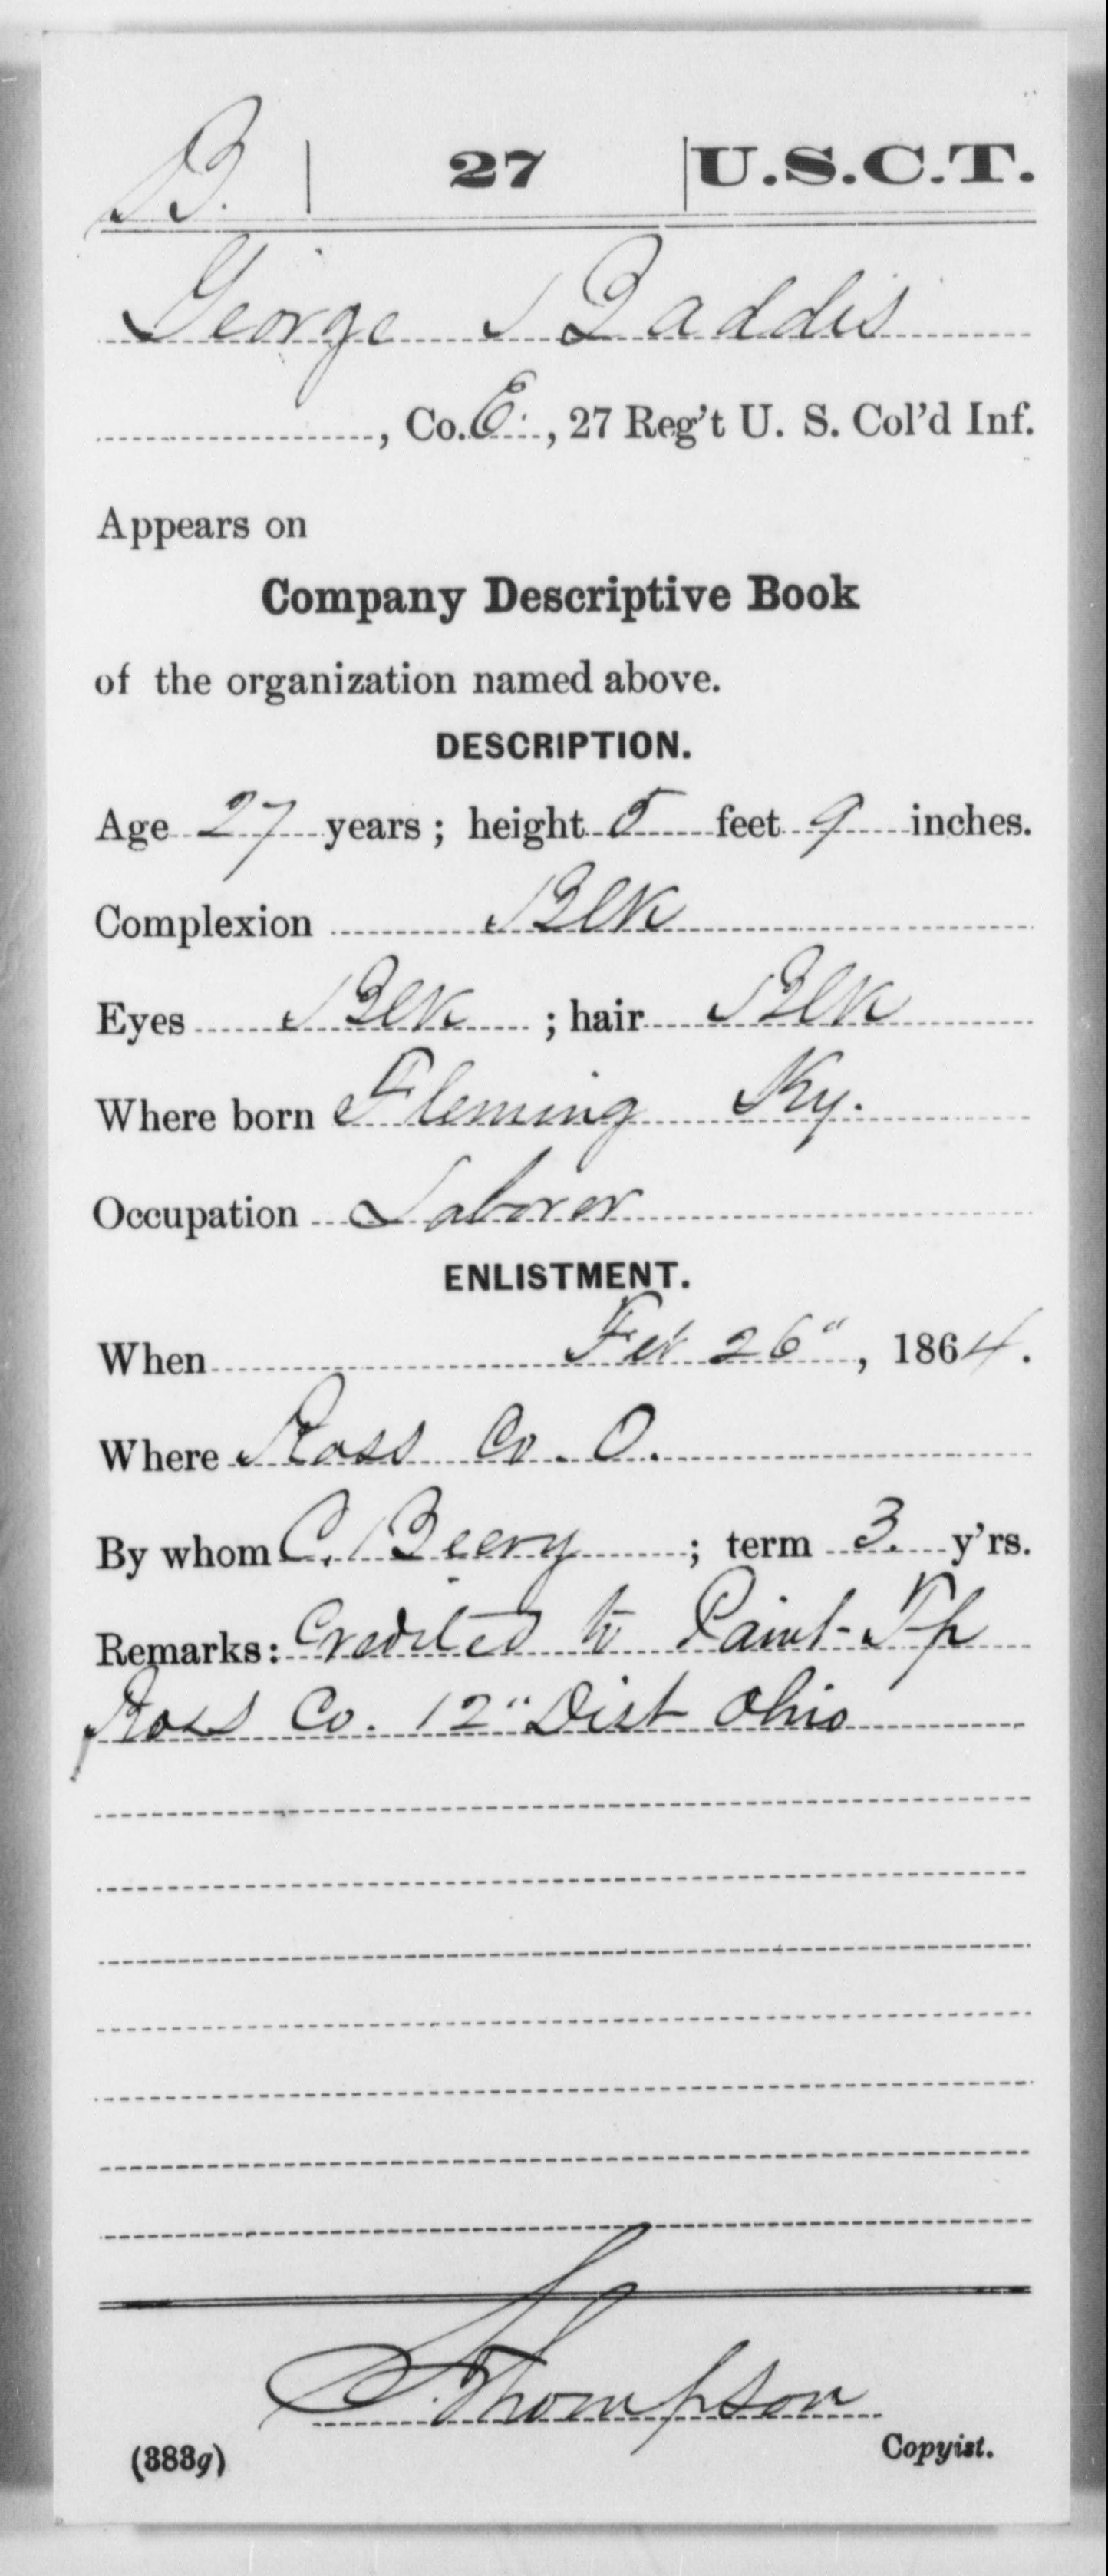 B. | 27 | U.S.C.T.
George Baddis
, Co. E., 27 Reg't U. S. Col'd Inf.
Appears on
Company Descriptive Book
of the organization named above.
DESCRIPTION.
Age 27 years; height 5 feet 9 inches.
Complexion Blk
Eyes Blk; hair Blk
Where born Fleming Ky.
Occupation Laborer
ENLISTMENT.
When Feb 26", 1864.
Where Ross Co. O.
By whom C. Beery; term 3. y'rs.
Remarks: Credited to Paint-Tp
Ross Co. 12" Dist Ohio
Thompson
(383g) Copyist.